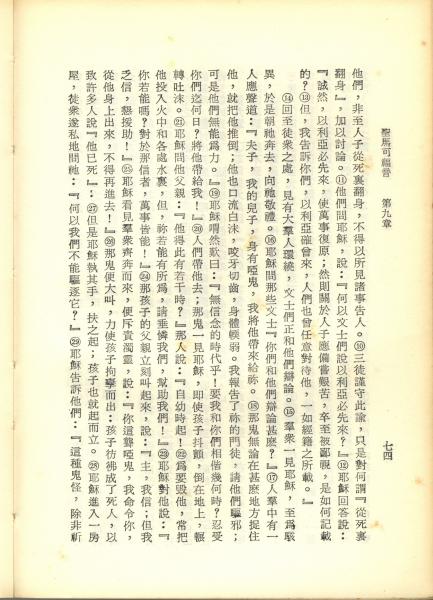 聖馬可福音　第九章
七四
他們，非至人子從死裏翻身，不得以所見諸事告人。⑩三徒謹守此諭，只是對何謂『從死裏
翻身』，加以討論。⑪他們問耶穌，說：『何以文士們說以利亞必先來？』⑫耶穌回答說：
『誠然，以利亞必先來，使萬事復原；然則關於人子應備嘗艱苦，卒至被鄙覬，是如何記載
的？⑬但，我告訴你們，以利亞確曾來，人們也曾任意對待他，一如經籍之所載。』
⑭回至徒衆之處，見有大羣人環繞，文士們正和他們辯論。⑮羣衆一見耶穌，至爲駭
異，於是朝祂奔去，向祂敬禮。⑯耶穌問那些文士『你們和他們辯論甚麽？』⑰人羣中有一
人應聲道：『夫子，我的兒子，身有啞鬼，我將他帶來給祢。⑱那鬼無論在甚麽地方捉住
他，就把他推倒；他也口流白沫，咬牙切齒，身體輭弱。我報告了祢的門徒，請他們驅邪；
可是他們無能爲力。』⑲耶穌喟然歎曰：『無信念的時代乎！要我和你們相偕幾何時？忍受
你們迄何日？將他帶給我！』⑳人們帶他去；那鬼一見耶穌，即使孩子抖顫，倒在地上，輾
轉吐沫。㉑耶穌問他父親：『他得此有若干時？』那人說：『自幼時起！㉒爲要毀他，常把
他投入火中和各處水裏，但，祢若能有所爲，請垂憐我們，幫助我們！』㉓耶穌對他說：『
你若能嗎？對於那信者，萬事皆能！』㉔那孩子的父親立刻叫起來，說：『主，我信；但我
乏信，懇援助！』㉕耶穌看見羣衆齊奔而來，便斥責濁靈，說：『你這聾啞鬼，我命令你，
從他身上出來，不得再進去！』㉖那鬼便大叫，力使孩子拘攣而出：孩子彷彿成了死人，以
致許多人說『他已死』：㉗但是耶穌執其手，扶之起；孩子也就起而立。㉘耶穌進入一房
屋，徒衆遂私地問祂：『何以我們不能驅逐它？』㉙耶穌告訴他們：『這種鬼怪，除非祈